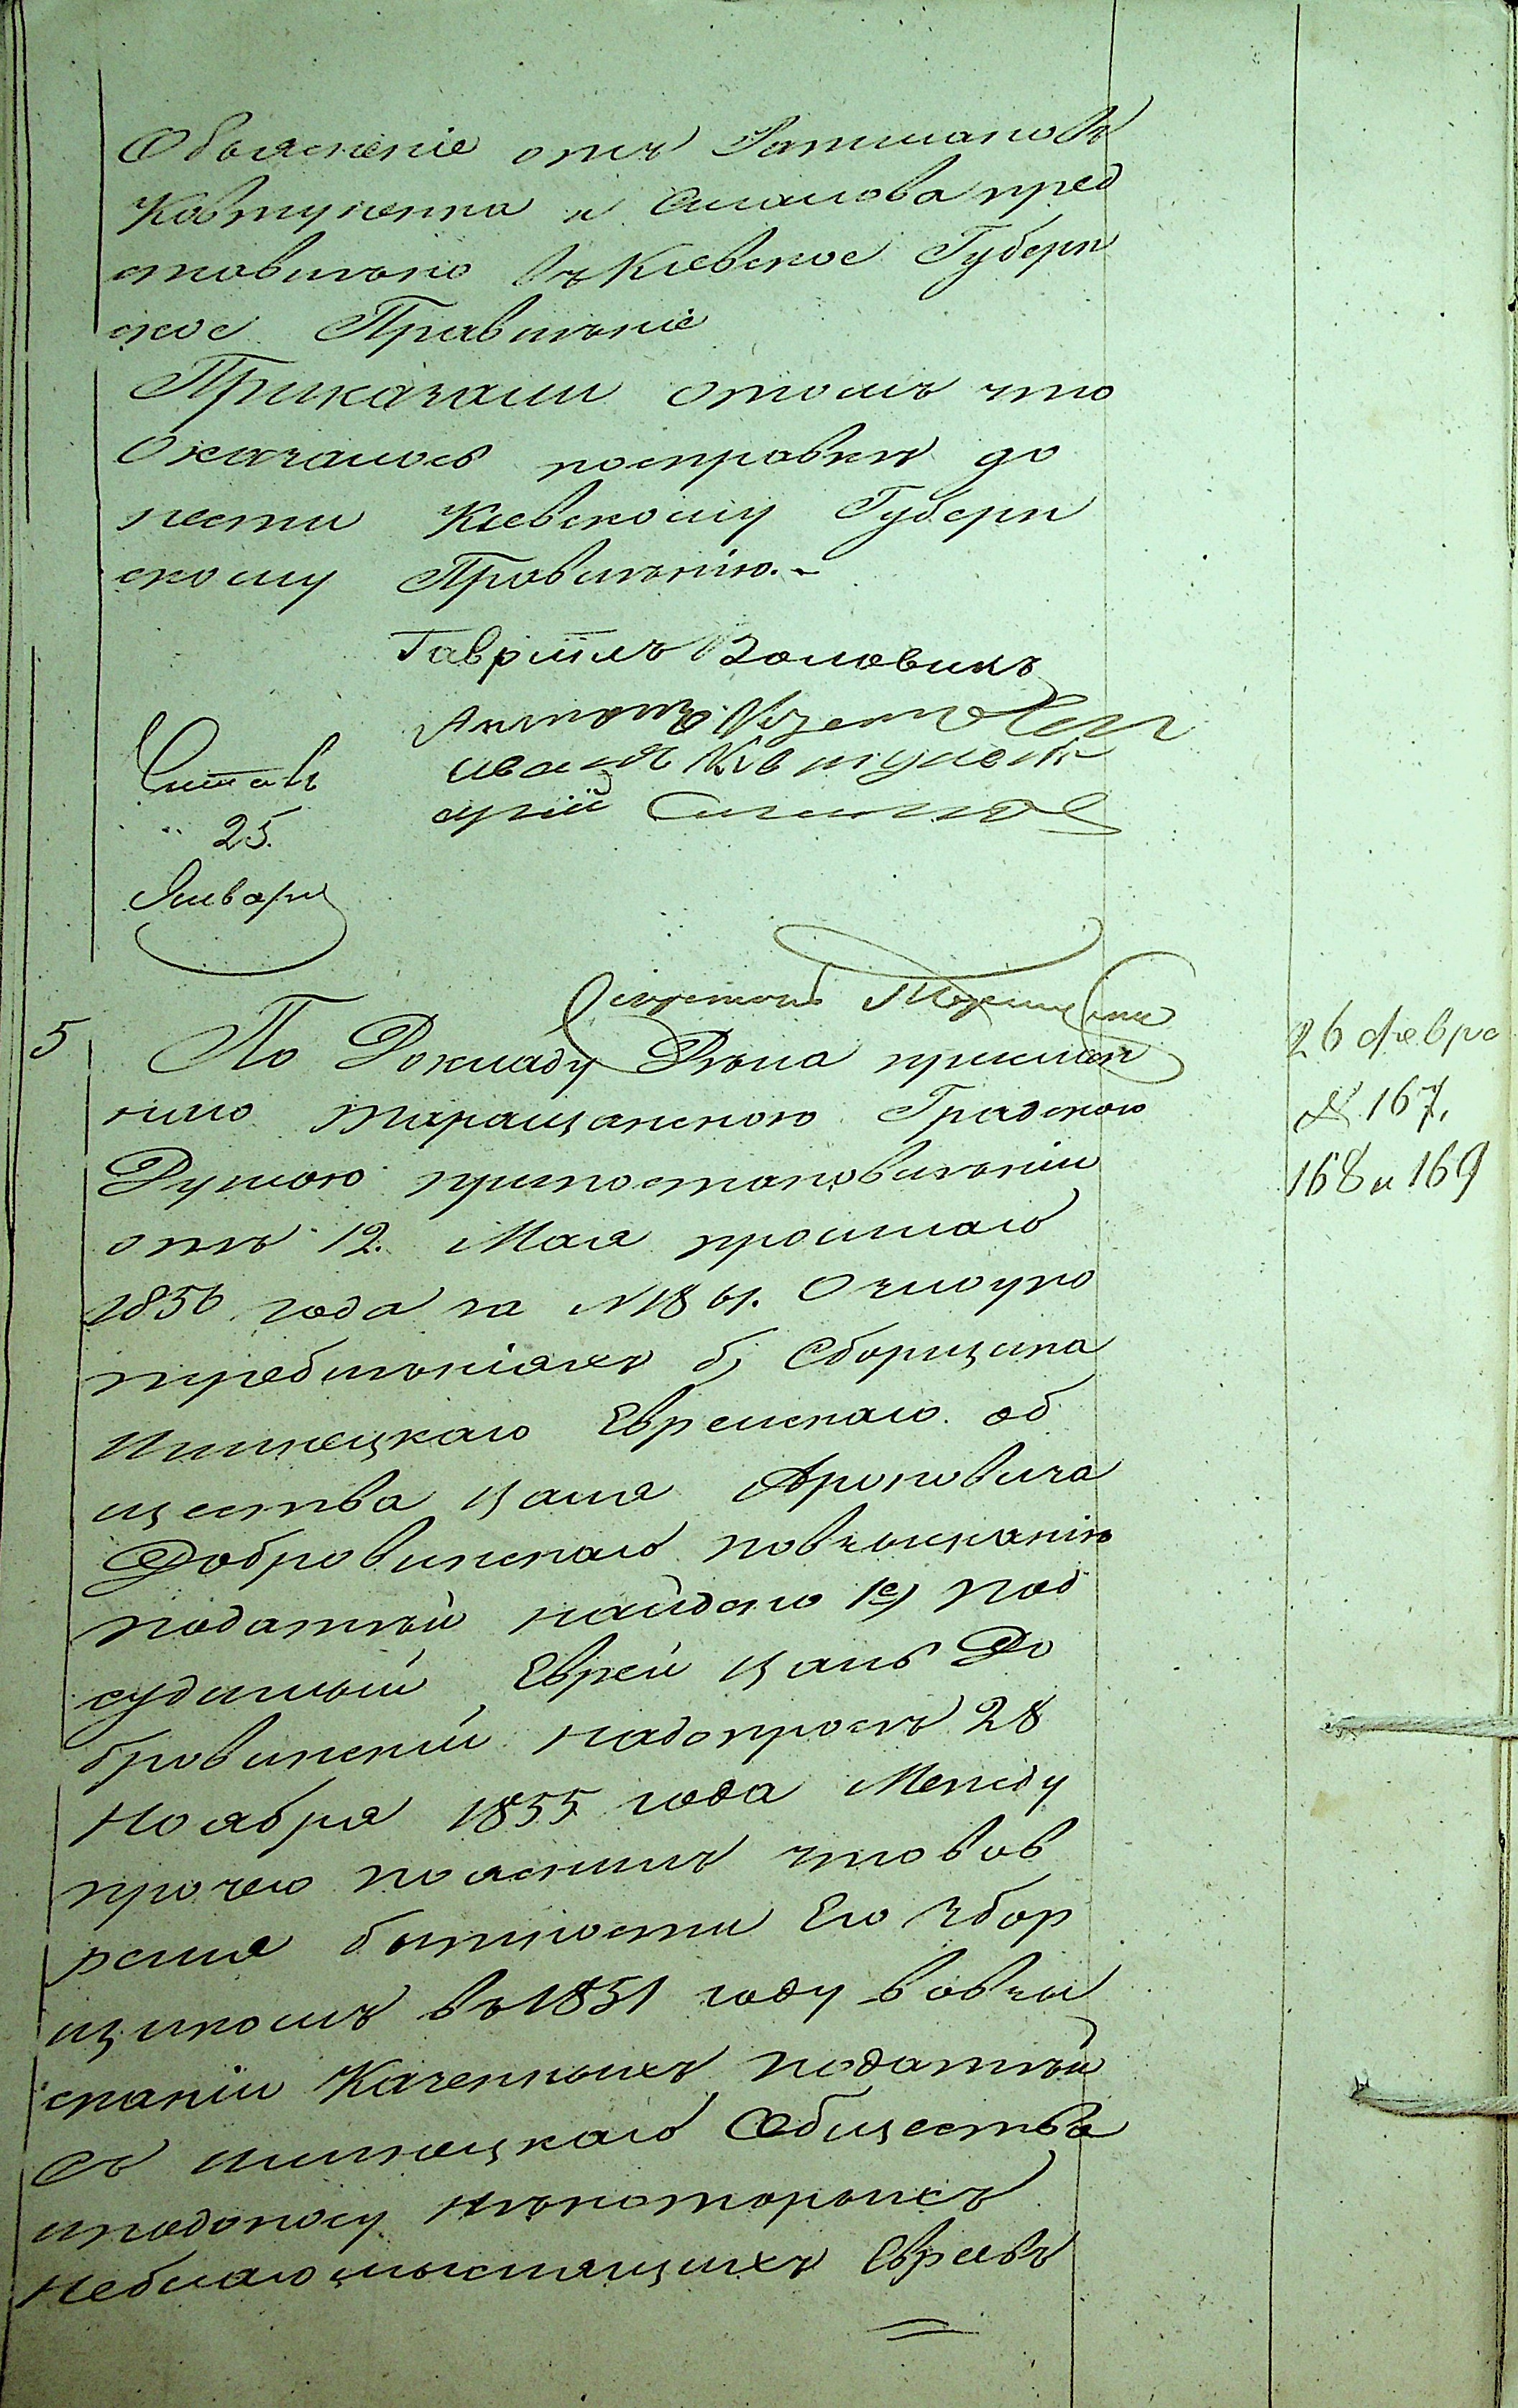 Объясненіе отъ Ратмановъ
Ковтуненка и Симанова пред
ставитьно въ Кіевское Губерн
ское Правленіе
Приказали отомъ что
Оказалось посправки до
нести Кіевскому Губерн
скому Правленію.
Гавріилъ Воловикъ
Антонъ
Иванъ Ковтунен
Юрій
Читалъ
25.
Января
Секретарь
5
По Докладу Дѣла прислан
ного Таращанскою Градскою
Думою припостановленіи
отъ 12. Мая прошлаго
1856 года за № 1861. О злоупо
требленіяхъ б, Сборщика
Шинецкаго Еврейскаго об
щества Цаля Ароновича
Добровинскаго повзысканію
податей найдено 1е) под
судимый Еврей Цаль До
бровинскій надопросѣ 28
Ноября 1855 года Между
прочего пояснилъ что вов
ремя бытности Его Збор
щикомъ въ 1851 году вовзы
сканіи Казенныхъ податей
съ Шинецкаго Общества
иподоносу Нѣкоторыхъ
Неблагомыслящихъ Евреевъ
26 Февра
№ 167,
168 и 169